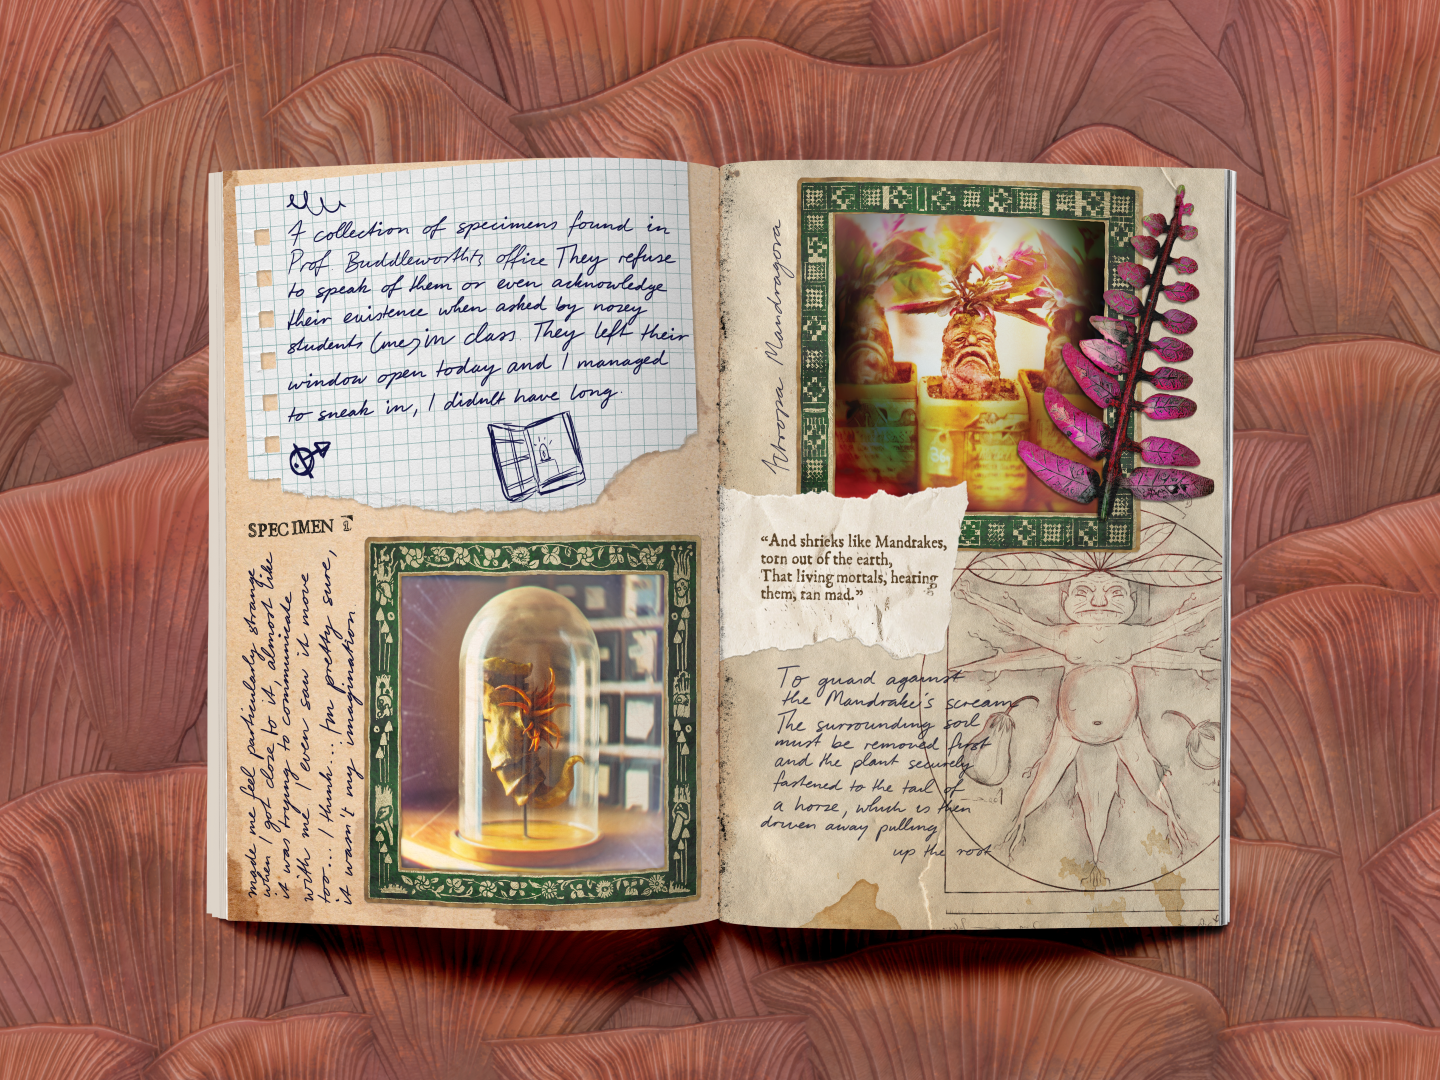 A collection of specimens found in
Prof. Buddleworth's office They refuse
to speak of them or even acknowledge
their existence when asked by nosey
students (me) in class. They left their
window open today and I managed
to sneak in, I didn't have long.
SPECIMEN 1
made me feel particularly strange
when I got close to it, almost like
it was trying to communicate
with me I even saw it move
too... I think... I'm pretty sure,
it wasn't my imagination
Atropa Mandragora
“And shrieks like Mandrakes,
torn out of the earth,
That living mortals, hearing
them, ran mad.”
To guard against
the Mandrake's scream
The surrounding soil
must be removed first
and the plant securely
fastened to the tail of
a horse, which is then
driven away pulling
up the root